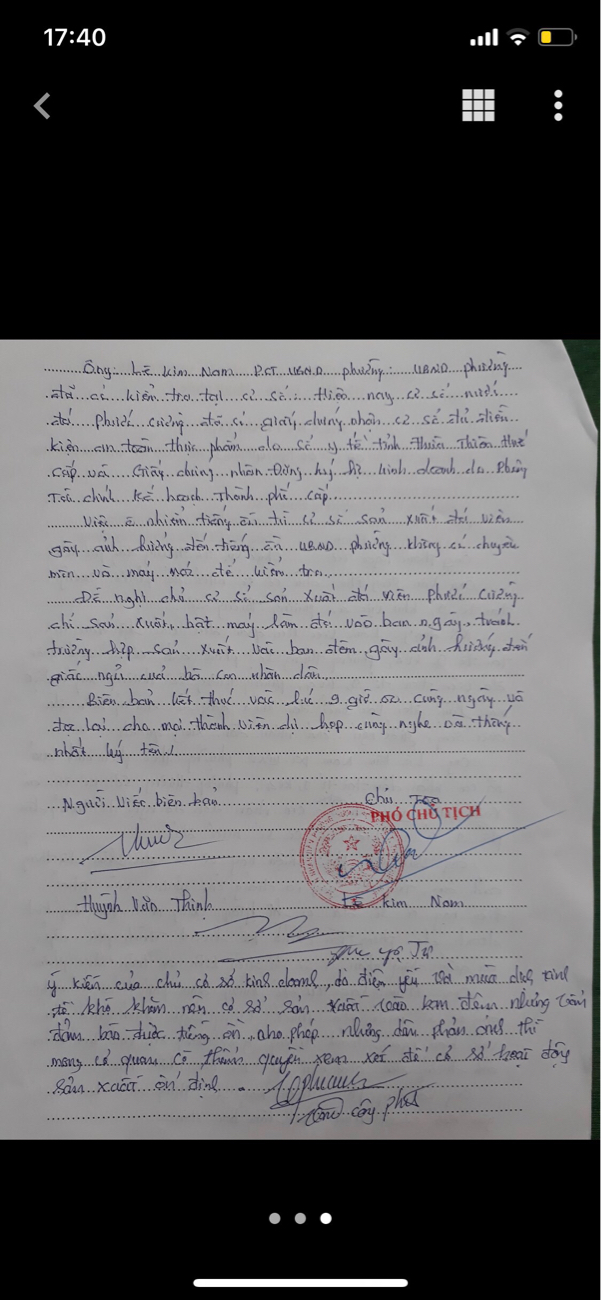 17:40
Ông: Lê Kim Nam PCT UBND phường: UBND phường
đã có kiểm tra tại cơ sở: Hiện nay cơ sở nước
đá Phước Cường đã có giấy chứng nhận cơ sở đủ điều
kiện an toàn thực phẩm do Sở y tế tỉnh Thừa Thiên Huế
cấp và Giấy chứng nhận Đăng ký hộ kinh doanh do Phòng
Tài chính Kế hoạch Thành phố cấp
Việc ô nhiễm tiếng ồn từ cơ sở sản xuất đá viên
gây ảnh hưởng đến tiếng ồn UBND phường không có chuyên
môn và máy móc để kiểm tra
Đề nghị chủ cơ sở sản xuất đá viên Phước Cường
chỉ sản xuất, bật máy làm đá vào ban ngày, tránh
trường hợp sản xuất vào ban đêm gây ảnh hưởng đến
giấc ngủ của bà con nhân dân
Biên bản kết thúc vào lúc 9 giờ cùng ngày và
đọc lại cho mọi thành viên dự họp cùng nghe và thống
nhất ký tên./
Người viết biên bản
Chủ Tọa
PHÓ CHỦ TỊCH
Huỳnh Văn Thịnh
Lê Kim Nam
ý kiến của chủ cơ sở kinh doanh, do điện yếu và mùa dịch kinh
tế khó khăn nên cơ sở sản xuất vào ban đêm nhưng vẫn
đảm bảo được tiếng ồn cho phép nhưng dân phản ánh thì
mong cơ quan có thẩm quyền xem xét để cơ sở hoạt động
sản xuất ổn định.